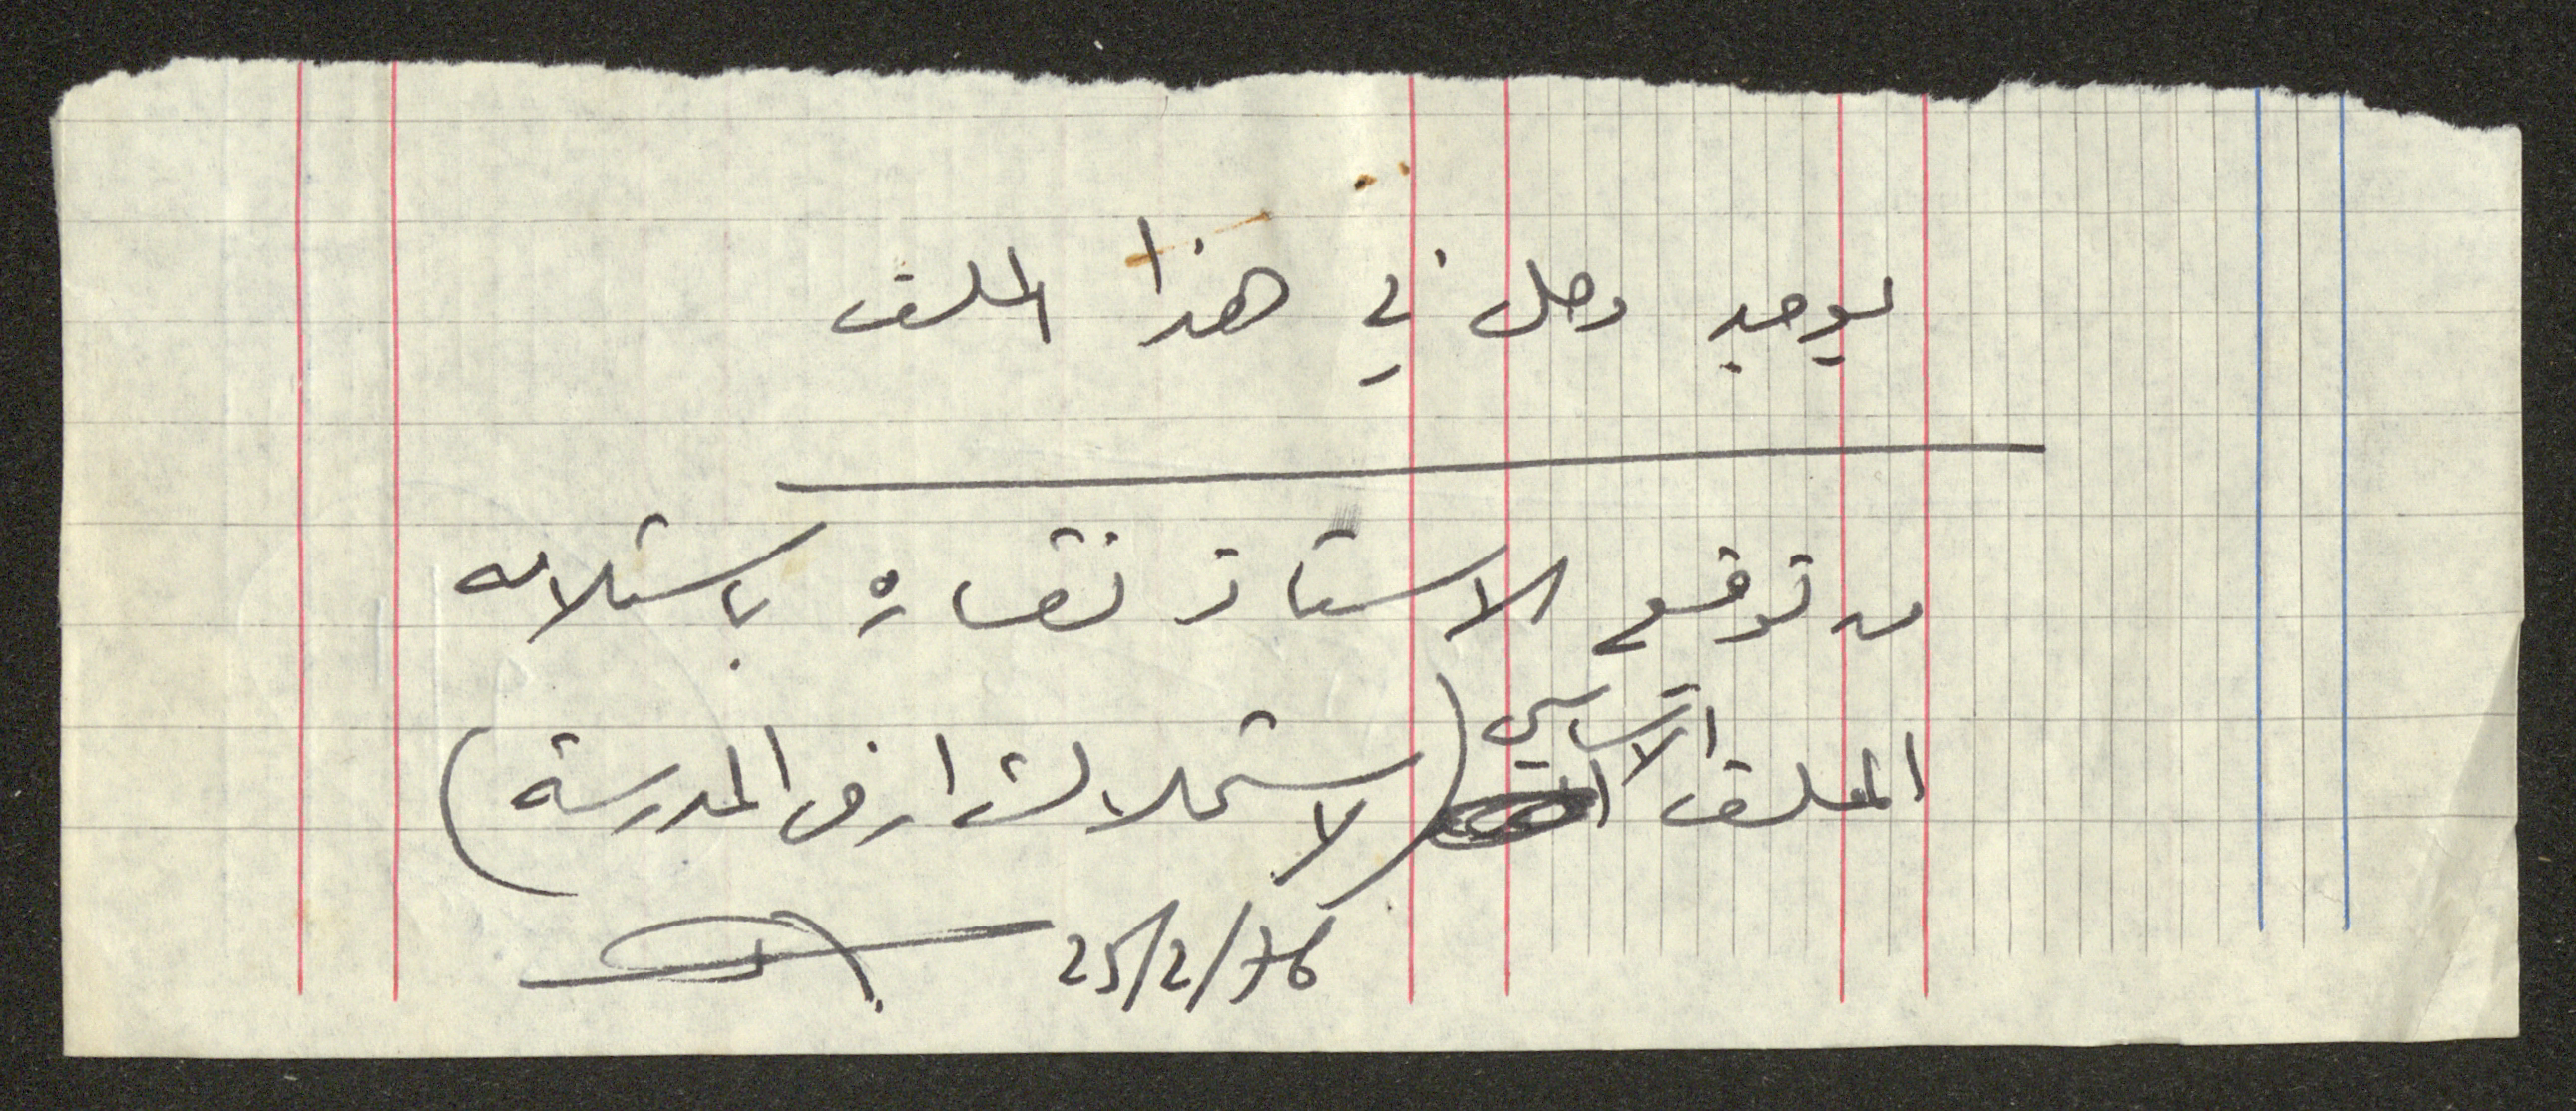 يوجد وصل في هذا الملف
من توقيع الاستاذ نقاره باستلامه
الملف الاساسي (لاستملاك ارض المدرسة)
25/2/76